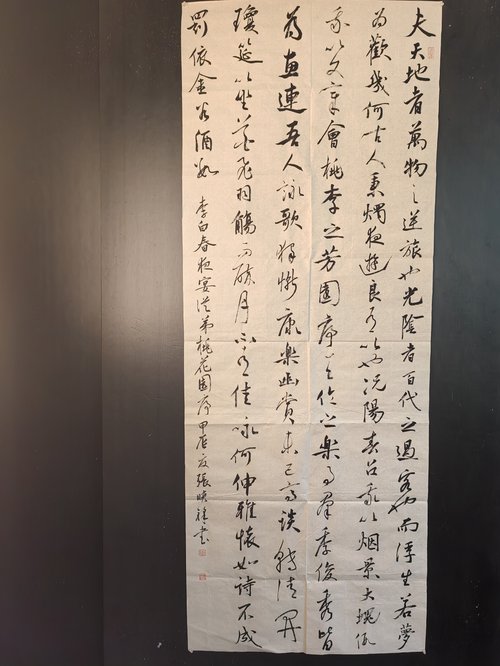 夫天地者萬物之逆旅也光陰者百代之過客也而浮生若夢
为歡幾何古人秉燭夜遊良有以也况陽春召我以烟景大塊假
我以文章會桃李之芳園序天伦之樂事羣季俊秀皆
為惠連吾人詠歌獨慚康樂幽賞未已高談轉清開
瓊筵以坐花飛羽觴而醉月不有佳咏何伸雅懷如詩不成
罰依金谷酒数
李白春夜宴從弟桃花園序甲辰夏張映書